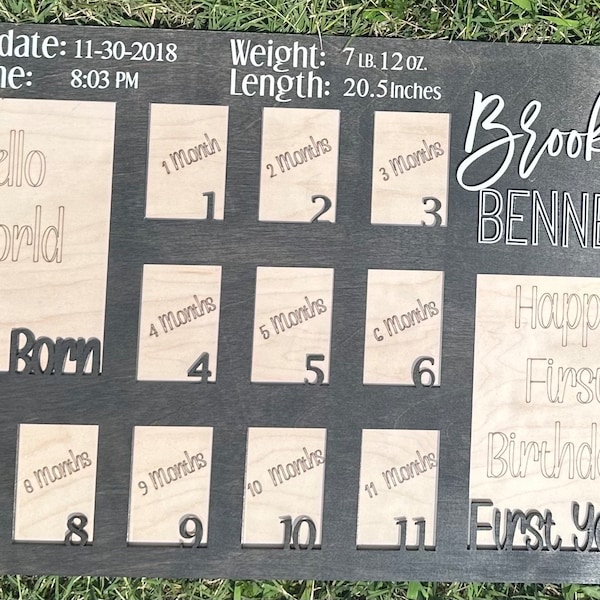 date: 11-30-2018
8:03 PM
Weight: 7 LB. 12 OZ.
Length: 20.5 Inches
Brook
BENNE
Born
1 Month
1
2 Months
2
3 Months
3
4 Months
4
5 Months
5
6 Months
6
8 Months
8
9 Months
9
10 Months
10
11 Months
11
Happ
First
Birthda
First Y